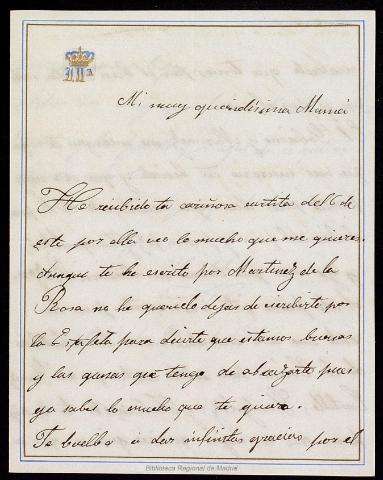 Mi muy queridísima Mamá
He recibido tu cariñosa cartita del 6 de
este por ella veo lo mucho que me quieres.
Aunque te he escrito por Martinez de la
Rosa no he querido dejar de escribirte por
la Estafeta para decirte que estamos buenas
y las ganas que tengo de abrazarte pues
ya sabes lo mucho que te quiero.
Te buelbo a dar infinitas gracias por el
Biblioteca Regional de Madrid